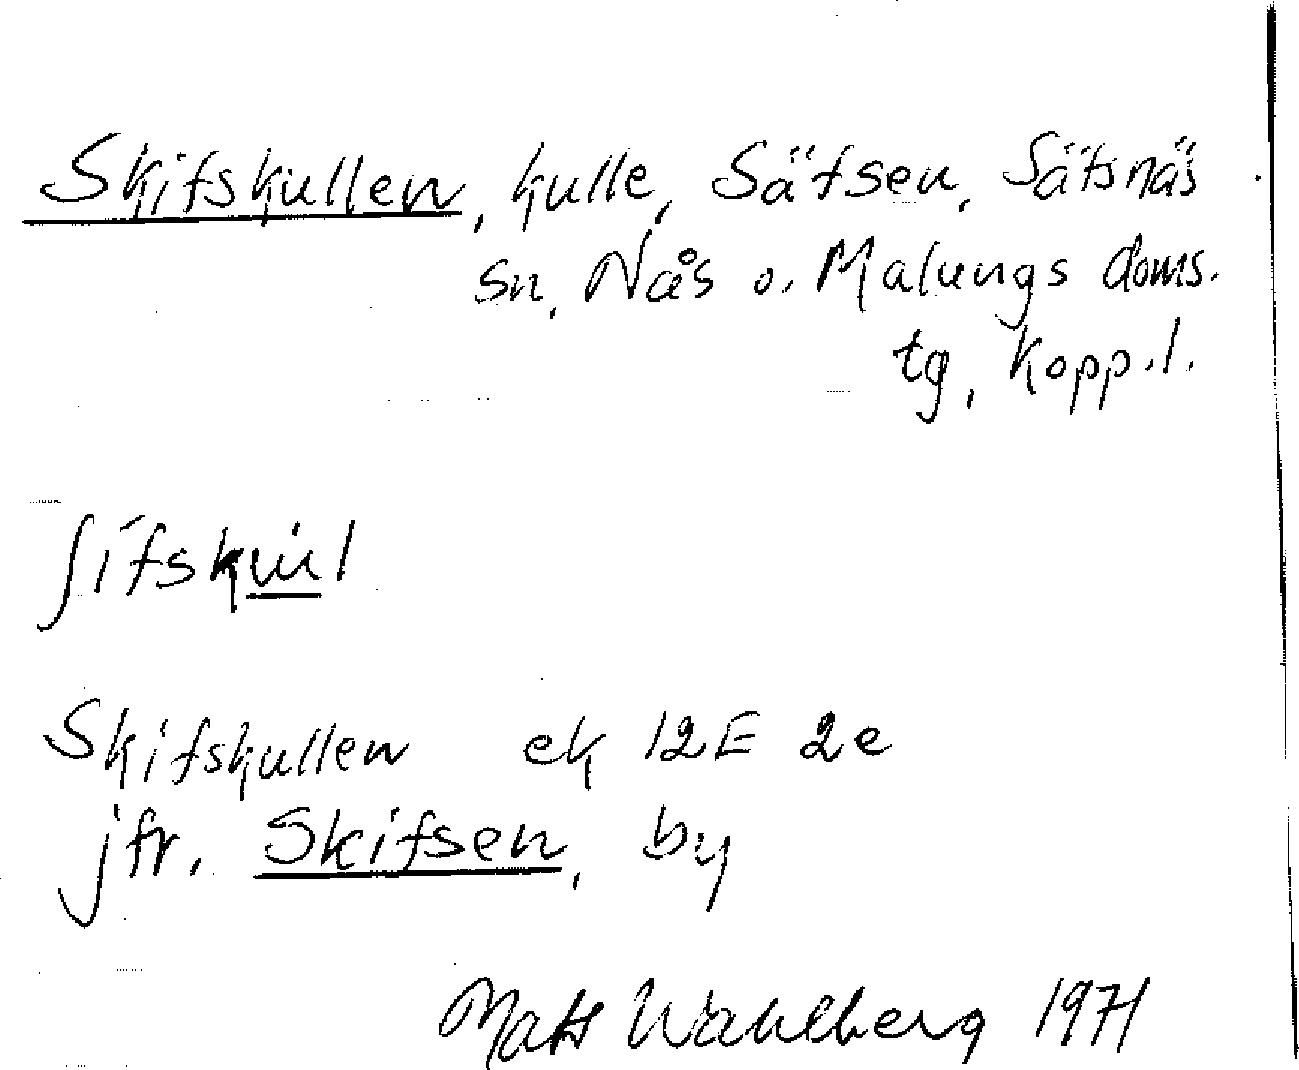 Skifskullen, kulle, Säfsen, Säfsnäs
sn, Nås o. Malungs doms.
tg, Kopp.l.
ʃifskul
Skifskullen ek 12E 2e
jfr. Skifsen, by
Mats Wahlberg 1971